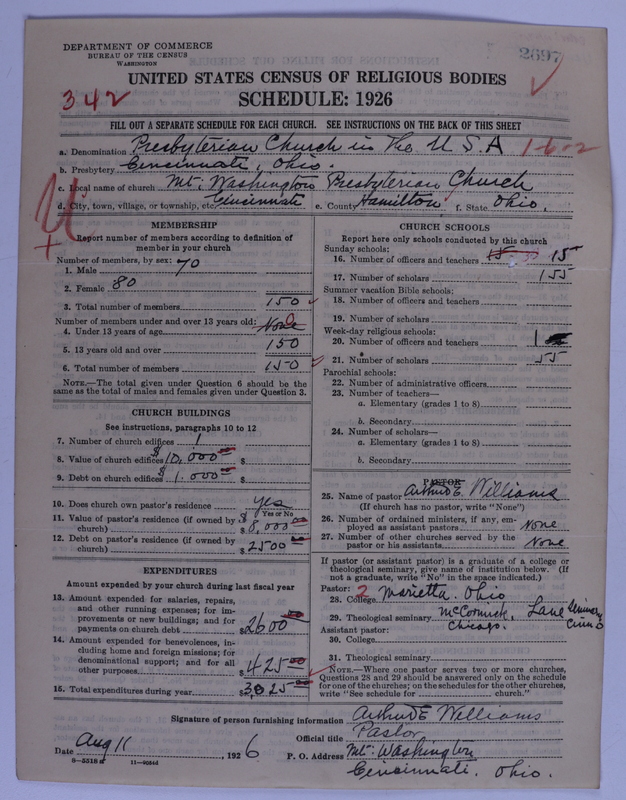 DEPARTMENT OF COMMERCE
BUREAU OF THE CENSUS
WASHINGTON
2697
UNITED STATES CENSUS OF RELIGIOUS BODIES
342
SCHEDULE: 1926
FILL OUT A SEPARATE SCHEDULE FOR EACH CHURCH. SEE INSTRUCTIONS ON THE BACK OF THIS SHEET
a. Denomination Presbyterian Church in the U S A 1-6-2
b. Presbytery Cincinnati, Ohio.
c. Local name of church Mt. Washington Presbyterian Church
d. City, town, village, or township, etc. Cincinnati e. County Hamilton f. State Ohio.
MEMBERSHIP
Report number of members according to definition of member in your church
Number of members, by sex:
1. Male 70
2. Female 80
3. Total number of members 150
Number of members under and over 13 years old:
4. Under 13 years of age None 0
5. 13 years old and over 150
6. Total number of members 150
NOTE.—The total given under Question 6 should be the same as the total of males and females given under Question 3.
CHURCH BUILDINGS
See instructions, paragraphs 10 to 12
7. Number of church edifices 1
8. Value of church edifices $10,000 $
9. Debt on church edifices $1,000 $
10. Does church own pastor's residence yes
Yes or No
11. Value of pastor's residence (if owned by church) $8,000
12. Debt on pastor's residence (if owned by church) $2500
EXPENDITURES
Amount expended by your church during last fiscal year
13. Amount expended for salaries, repairs, and other running expenses; for improvements or new buildings; and for payments on church debt $2600.00
14. Amount expended for benevolences, including home and foreign missions; for denominational support; and for all other purposes $425.00
15. Total expenditures during year $3,025.00
CHURCH SCHOOLS
Report here only schools conducted by this church
Sunday schools:
16. Number of officers and teachers 15 15
17. Number of scholars 155
Summer vacation Bible schools:
18. Number of officers and teachers
19. Number of scholars
Week-day religious schools:
20. Number of officers and teachers 1
21. Number of scholars 55
Parochial schools:
22. Number of administrative officers
23. Number of teachers—
a. Elementary (grades 1 to 8)
b. Secondary
24. Number of scholars—
a. Elementary (grades 1 to 8)
b. Secondary
PASTOR
25. Name of pastor Arthur E. Williams
(If church has no pastor, write "None")
26. Number of ordained ministers, if any, employed as assistant pastors None
27. Number of other churches served by the pastor or his assistants None
If pastor (or assistant pastor) is a graduate of a college or theological seminary, give name of institution below. (If not a graduate, write "No" in the space indicated.)
Pastor: 2
28. College Marietta. Ohio
29. Theological seminary McCormick, Chicago. Lane
Assistant pastor:
30. College
31. Theological seminary
NOTE.—Where one pastor serves two or more churches, Questions 28 and 29 should be answered only on the schedule for one of the churches; on the schedules for the other churches, write "See schedule for church."
Signature of person furnishing information Arthur E Williams
Official title Pastor
Date Aug 11, 1926 P. O. Address Mt. Washington
Cincinnati. Ohio.